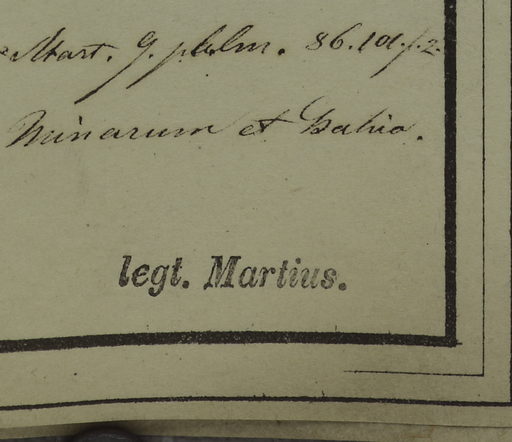 Mart. g. palm. 86. t. 101. f. 2.
Minarum et Bahia.
legt. Martius.